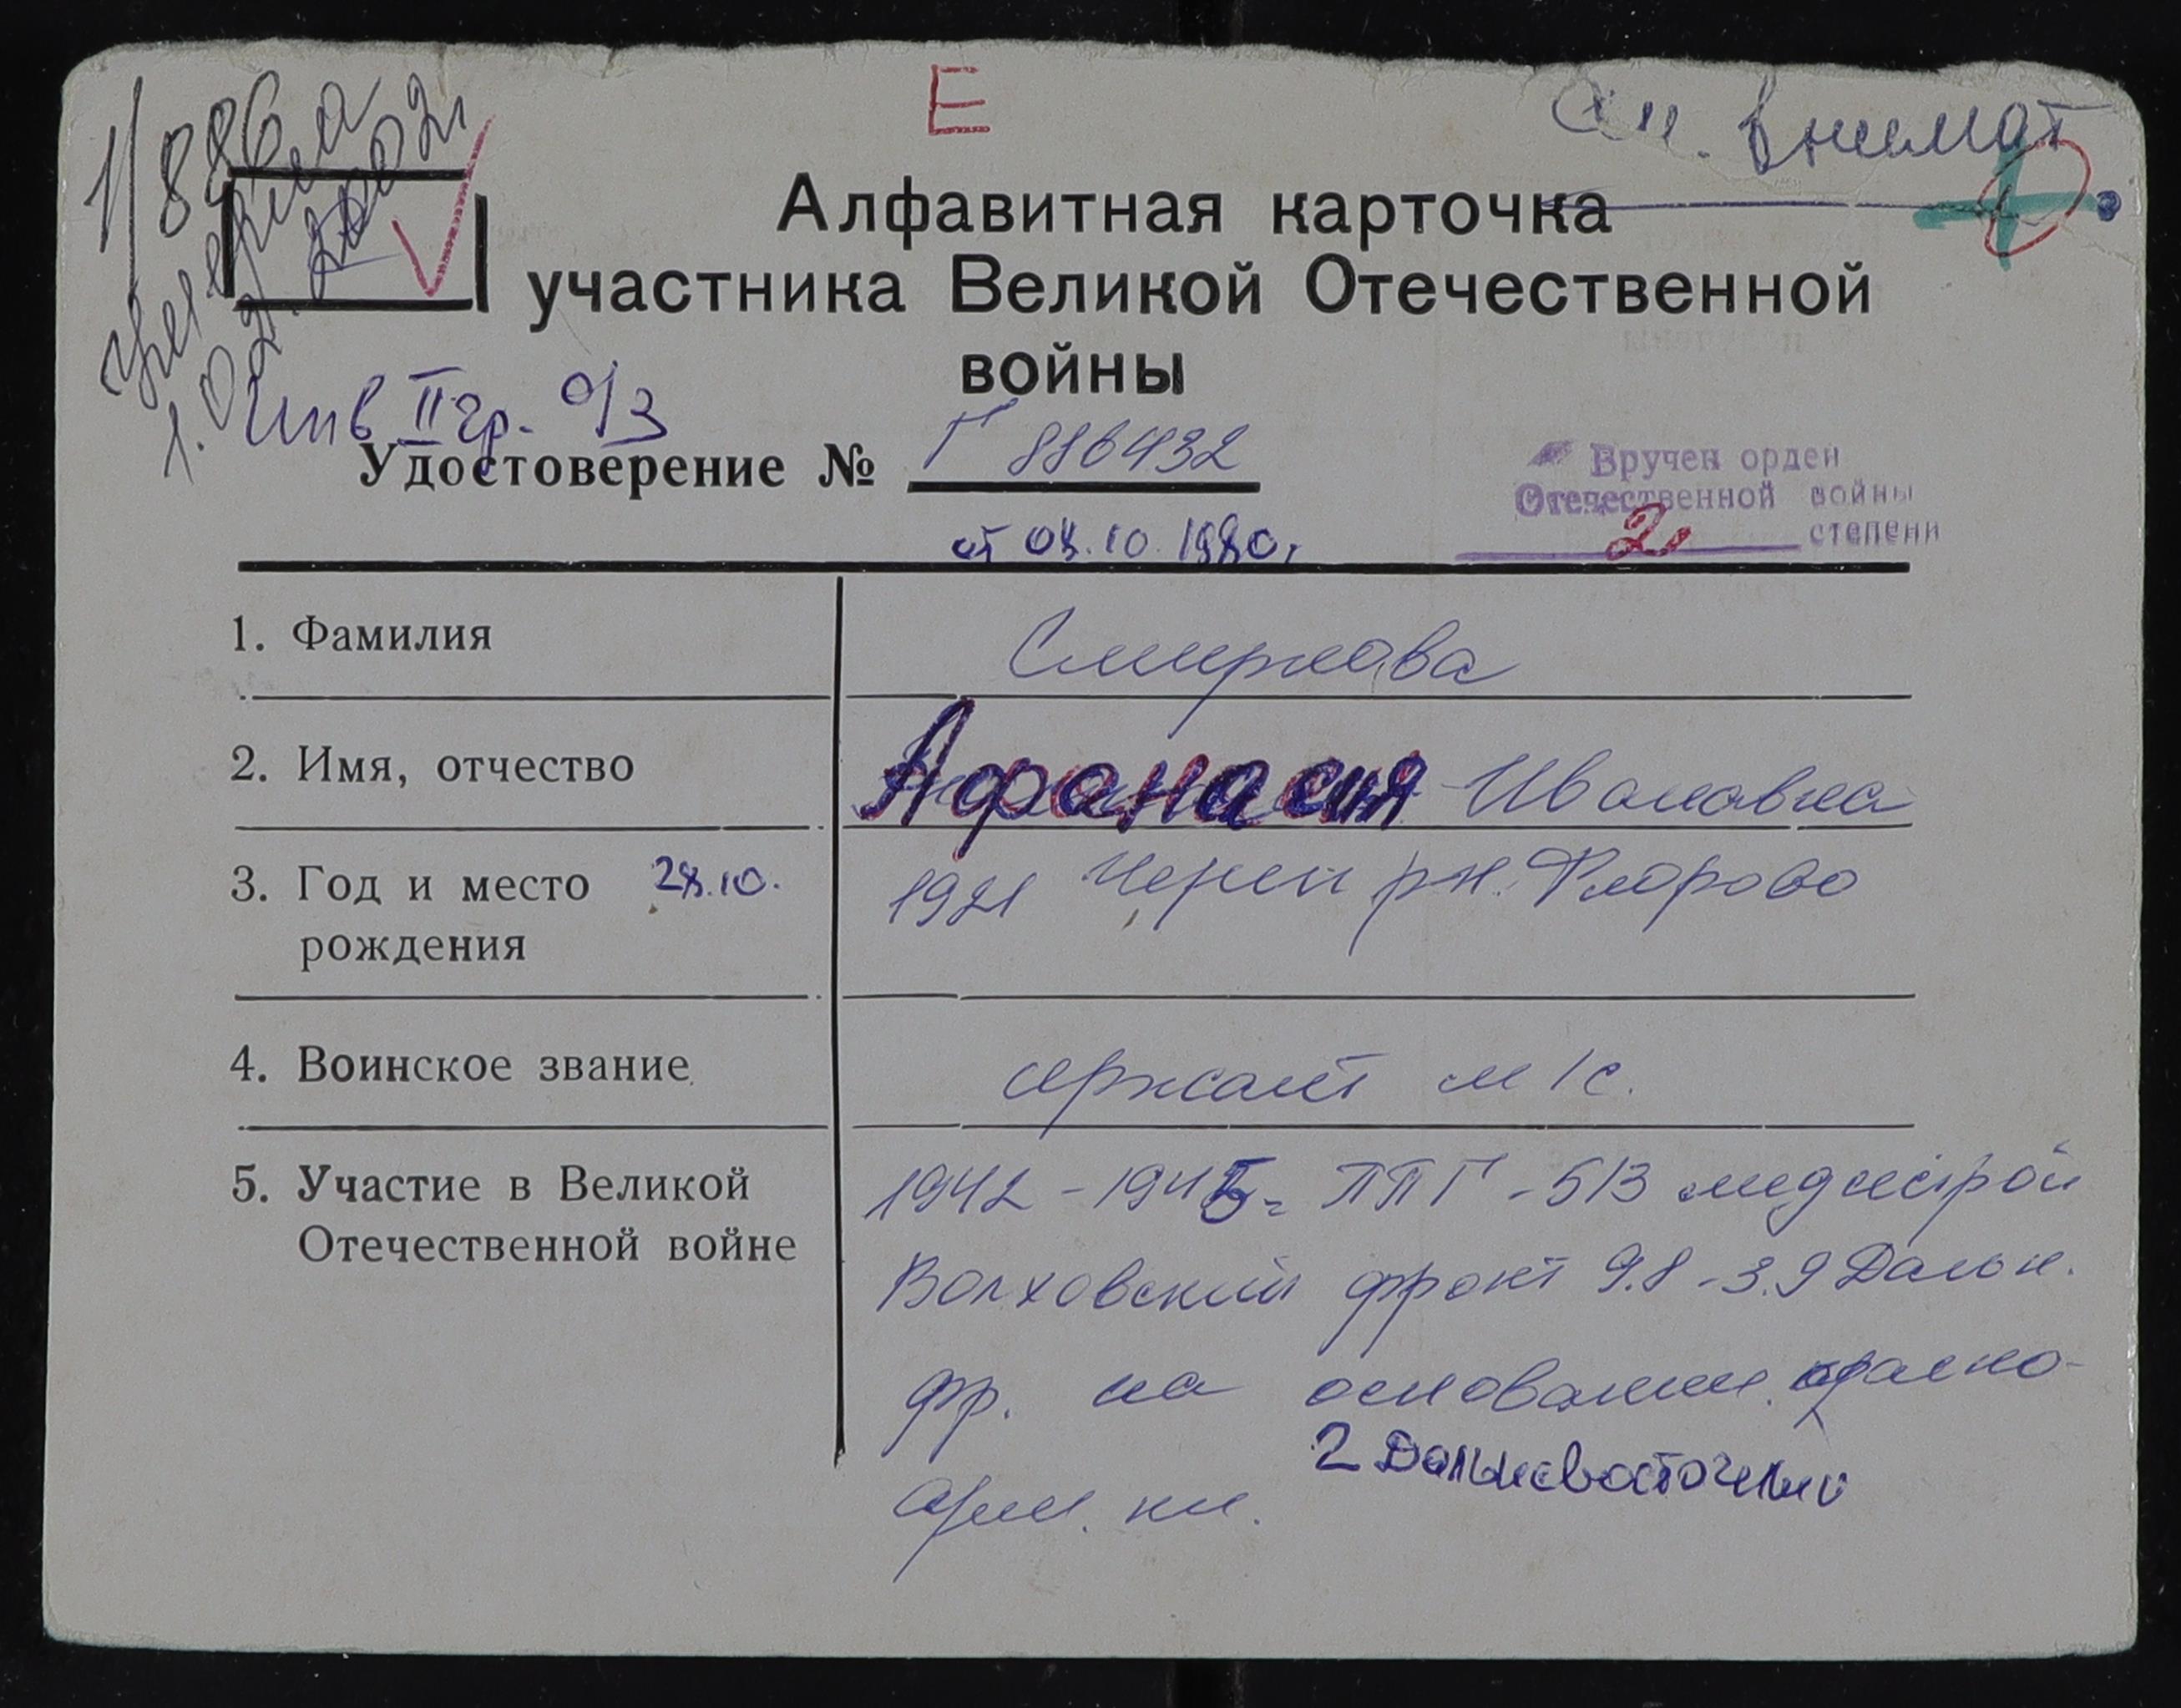 Е
см. внимат
1/886
Алфавитная карточка
участника Великой Отечественной
войны
Инв II гр. о/з
Удостоверение № Г 886432
от 04.10.1980г
Вручен орден
Отечественной войны
2 степени
1. Фамилия Смирнова
2. Имя, отчество Афанасия Ивановна
3. Год и место 28.10. 1921 Череп р-н. Флорово
рождения
4. Воинское звание сержант м/с.
5. Участие в Великой 1942-1945г ППГ-513 медсестрой
Отечественной войне Волховский фронт 9.8-3.9 Дальн.
фр. на основании красно-
2 Дальневосточный
арм. кн.